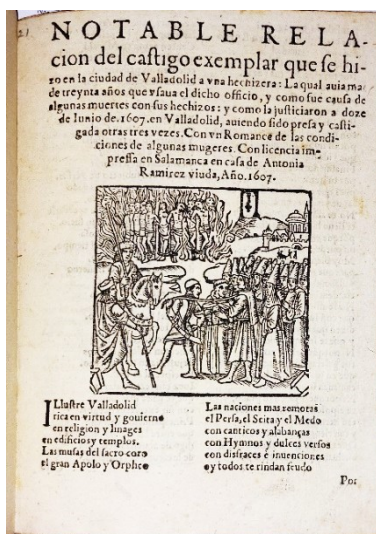 21
NOTABLE RELA-
cion del castigo exemplar que se hi-
zo en la ciudad de Valladolid a vna hechizera: La qual auia mas
de treynta años que vsaua el dicho officio, y como fue causa de
algunas muertes con sus hechizos: y como la justiciaron a doze
de Iunio de.1607.en Valladolid, auiendo sido presa y casti-
gada otras tres vezes. Con vn Romance de las condi-
ciones de algunas mugeres. Con licencia im-
pressa en Salamanca en casa de Antonia
Ramirez viuda, Año. 1607.
ILlustre Valladolid
rica en virtud y gouierno
en religion y Images
en edificios y templos.
Las musas del sacro coro
el gran Apolo y Orpheo
Las naciones mas remotas
el Persa, el Scita y el Medo
con canticos y alabanças
con Hymnos y dulces versos
con disfraces è inuenciones
oy todos te rindan feudo
Por